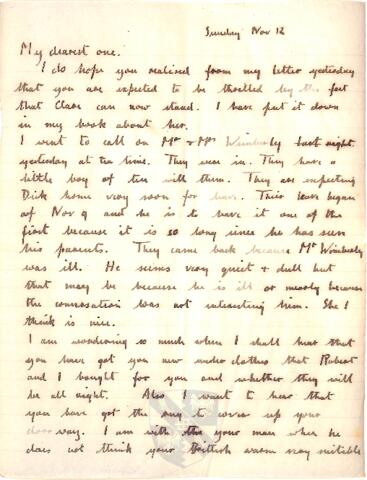 Sunday Nov 12
My dearest one.
I do hope you realised from my letter yesterday
that you are expected to be thrilled by the fact
that Clare can now stand. I have put it down
in my book about her.
I went to call on Mr & Mrs Wimberly last night.
yesterday at tea time. They were in. They have a
little boy of ten with them. They are expecting
Dick home very soon for leave. Their leave began
of Nov 9 and he is to have it one of the
first because it is so long since he has seen
his parents. They came back because Mr Wimberley
was ill. He seems very quiet & dull but
that may be because he is ill or mearly because
the conversation was not interesting him. She I
think is nice.
I am wondering so much when I shall hear that
you have got you new under clothes that Robert
and I bought for you and whether they will
be all right. Also I want to hear that
you have got the rug to cover up your
door way. I am with the your man when he
does not think your British warm very suitible